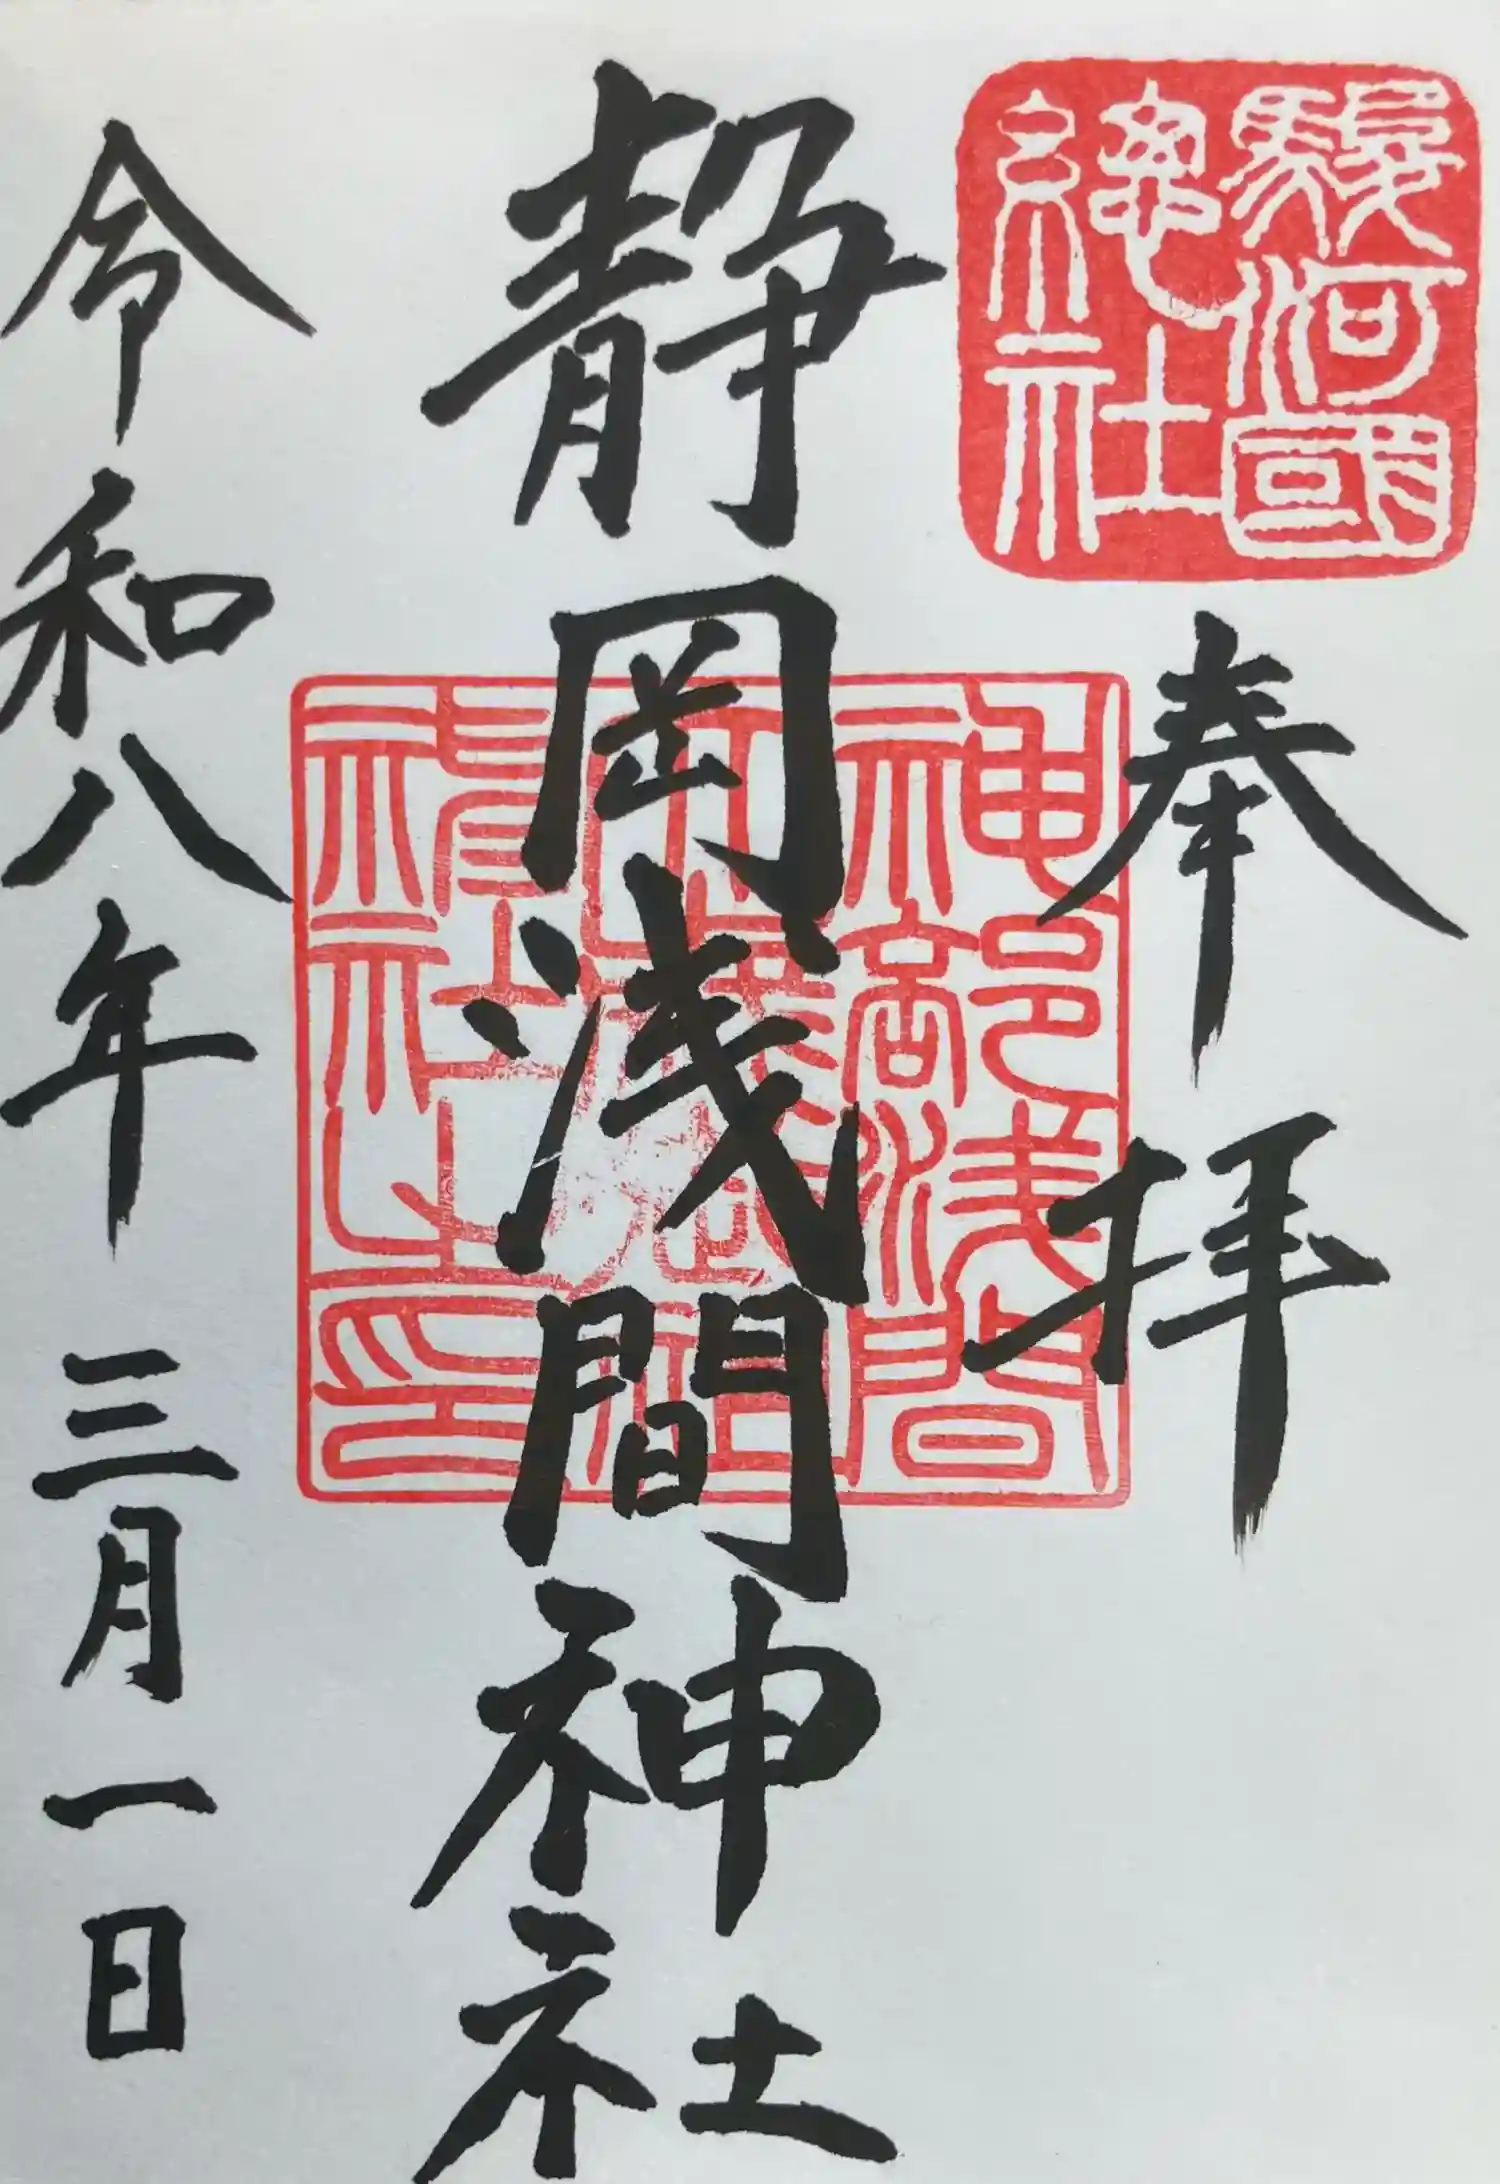 駿河國
總社
奉拝
静岡浅間神社
神部浅間
令和八年三月一日